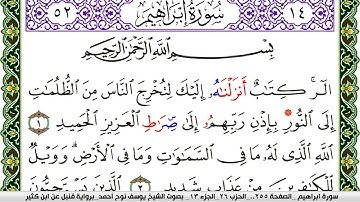 ١٤ سُورَةُ إِبْرَاهِيمَ ٥٢
بِسْمِ اللَّهِ الرَّحْمَٰنِ الرَّحِيمِ
الٓر۟ كِتَٰبٌ أَنزَلْنَٰهُۥ إِلَيْكَ لِتُخْرِجَ النَّاسَ مِنَ الظُّلُمَٰتِ
إِلَى النُّورِ بِإِذْنِ رَبِّهِمُۥ إِلَىٰ صِرَٰطِ الْعَزِيزِ الْحَمِيدِ ١
اللَّهِ الَّذِي لَهُۥ مَا فِي السَّمَٰوَٰتِ وَمَا فِي الْأَرْضِ وَوَيْلٌ
لِّلْكَٰفِرِينَ مِنْ عَذَابٍ شَدِيدٍ ٢ الَّذِينَ يَسْتَحِبُّونَ
سورة ابراهيم الصفحة ٢٥٥.. الحزب ٢٦ الجزء ١٣ بصوت الشيخ يوسف نوح أحمد برواية قنبل عن ابن كثير